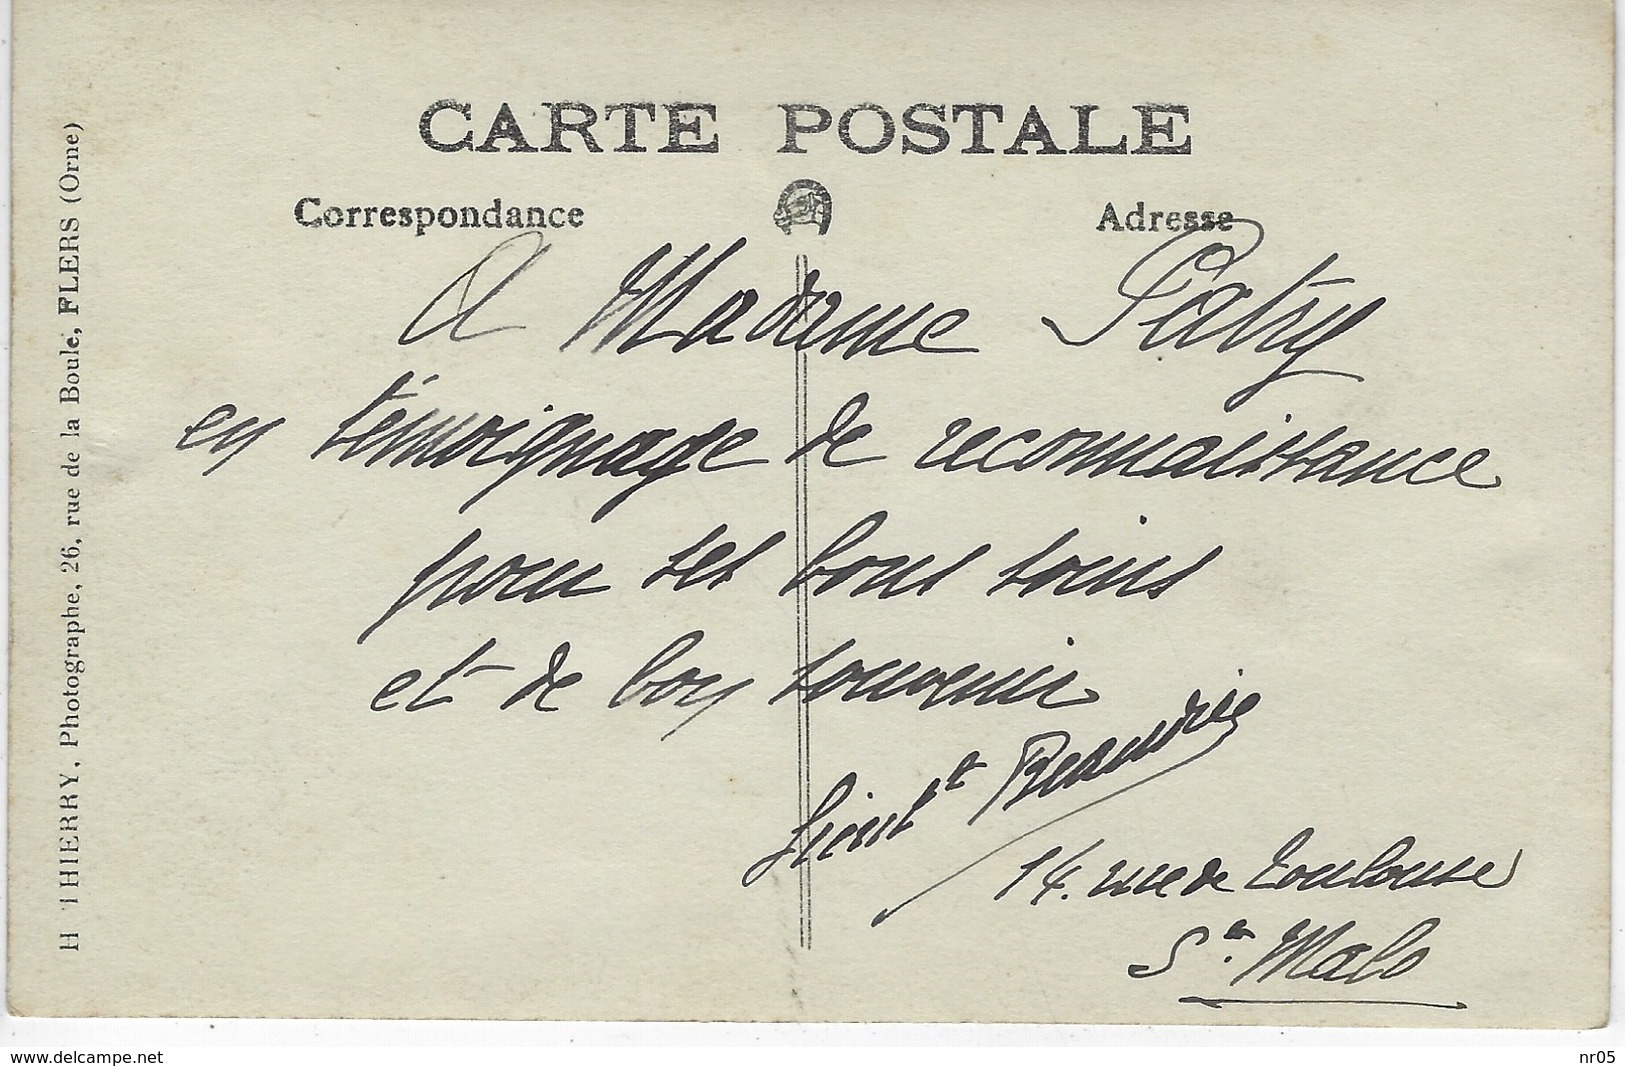 CARTE POSTALE
Correspondance
Adresse
A Madame Patry
en témoignage de reconnaissance
pour ses bons soins
et de bon souvenir
Lieut
14. rue de Toulouse
St. Malo
H THIERRY, Photographe, 26, rue de la Boule, FLERS (Orne)
www.delcampe.net
nr05